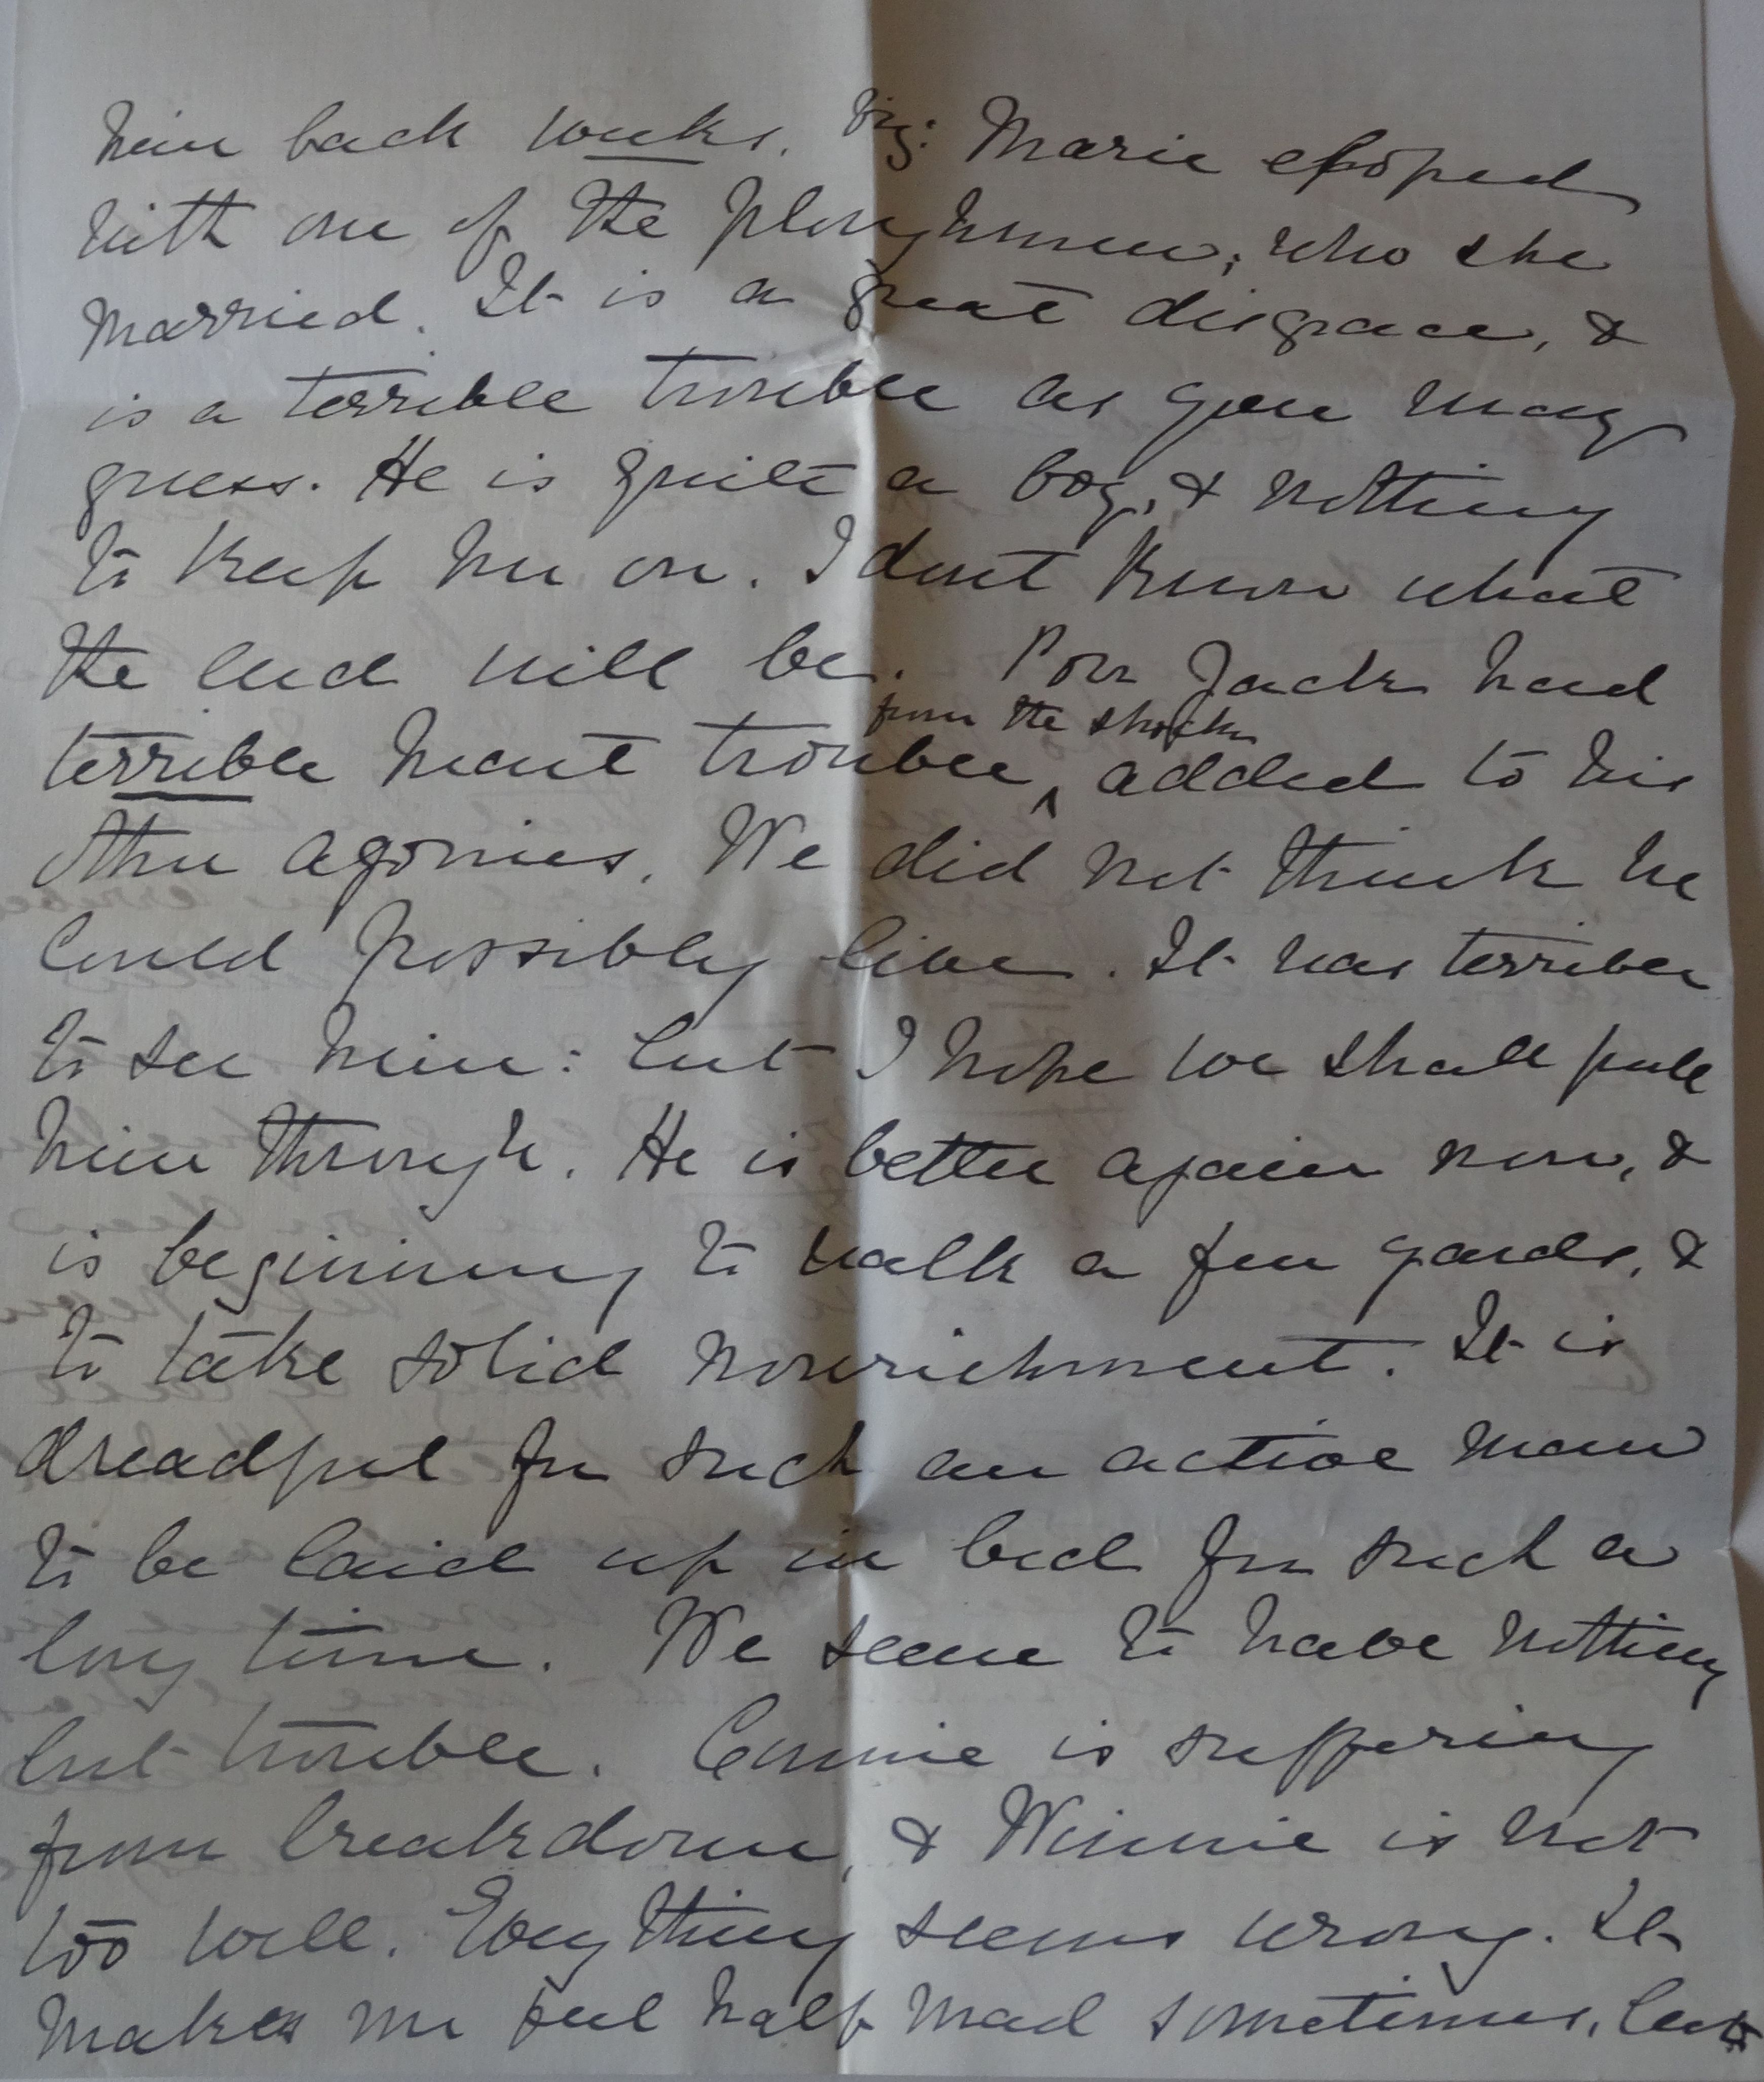 him back weeks. Viz: Marie eloped
with one of the ploughmen, who she
married. It is a great disgrace, &
is a terrible trouble as you may
guess. He is quite a boy, & nothing
to keep her on. I dont know what
the end will be. Poor Jack had
terrible heart trouble, from the shock, added to his
other agonies. We did not think he
could possibly live. It was terrible
to see him: but I hope we shall pull
him through. He is better again now, &
is beginning to walk a few yards, &
to take solid nourishment. It is
dreadful for such an active man
to be laid up in bed for such a
long time. We seem to have nothing
but trouble. Connie is suffering
from breakdown, & Winnie is not
too well. Everything seems wrong. It
makes me feel half mad sometimes, but